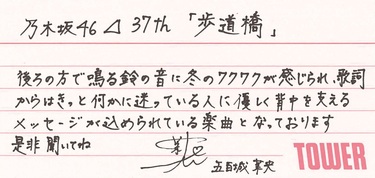 乃木坂46⊿ 37th 「歩道橋」
後ろの方で鳴る鈴の音に冬のワクワクが感じられ、歌詞
からはきっと何かに迷っている人に優しく背中を支える
メッセージが込められている楽曲となっております
是非聞いてね
五百城茉央
TOWER